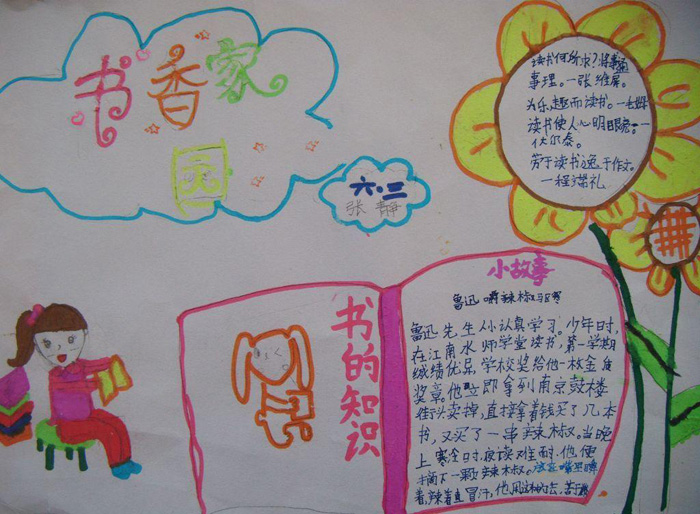 书香家园
六.三
张静
读书何所求?将事
事理。一张维屏。
为乐趣而读书。一毛姆
读书使人心明眼亮。一
伏尔泰。
劳于读书逸于作文。
一程端礼
书的知识
小故事
鲁迅嚼辣椒
鲁迅先生从小认真学习。少年时,
在江南水师学堂读书,第一学期
成绩优异,学校奖给他一枚金质
奖章。他立即拿到南京鼓楼
街头卖掉,直接拿着钱买了几本
书,又买了一串辣椒。当晚
上寒冷时,夜读难耐,他便
摘下一颗辣椒。放在嘴里
着,辣着直冒汗,他用这种